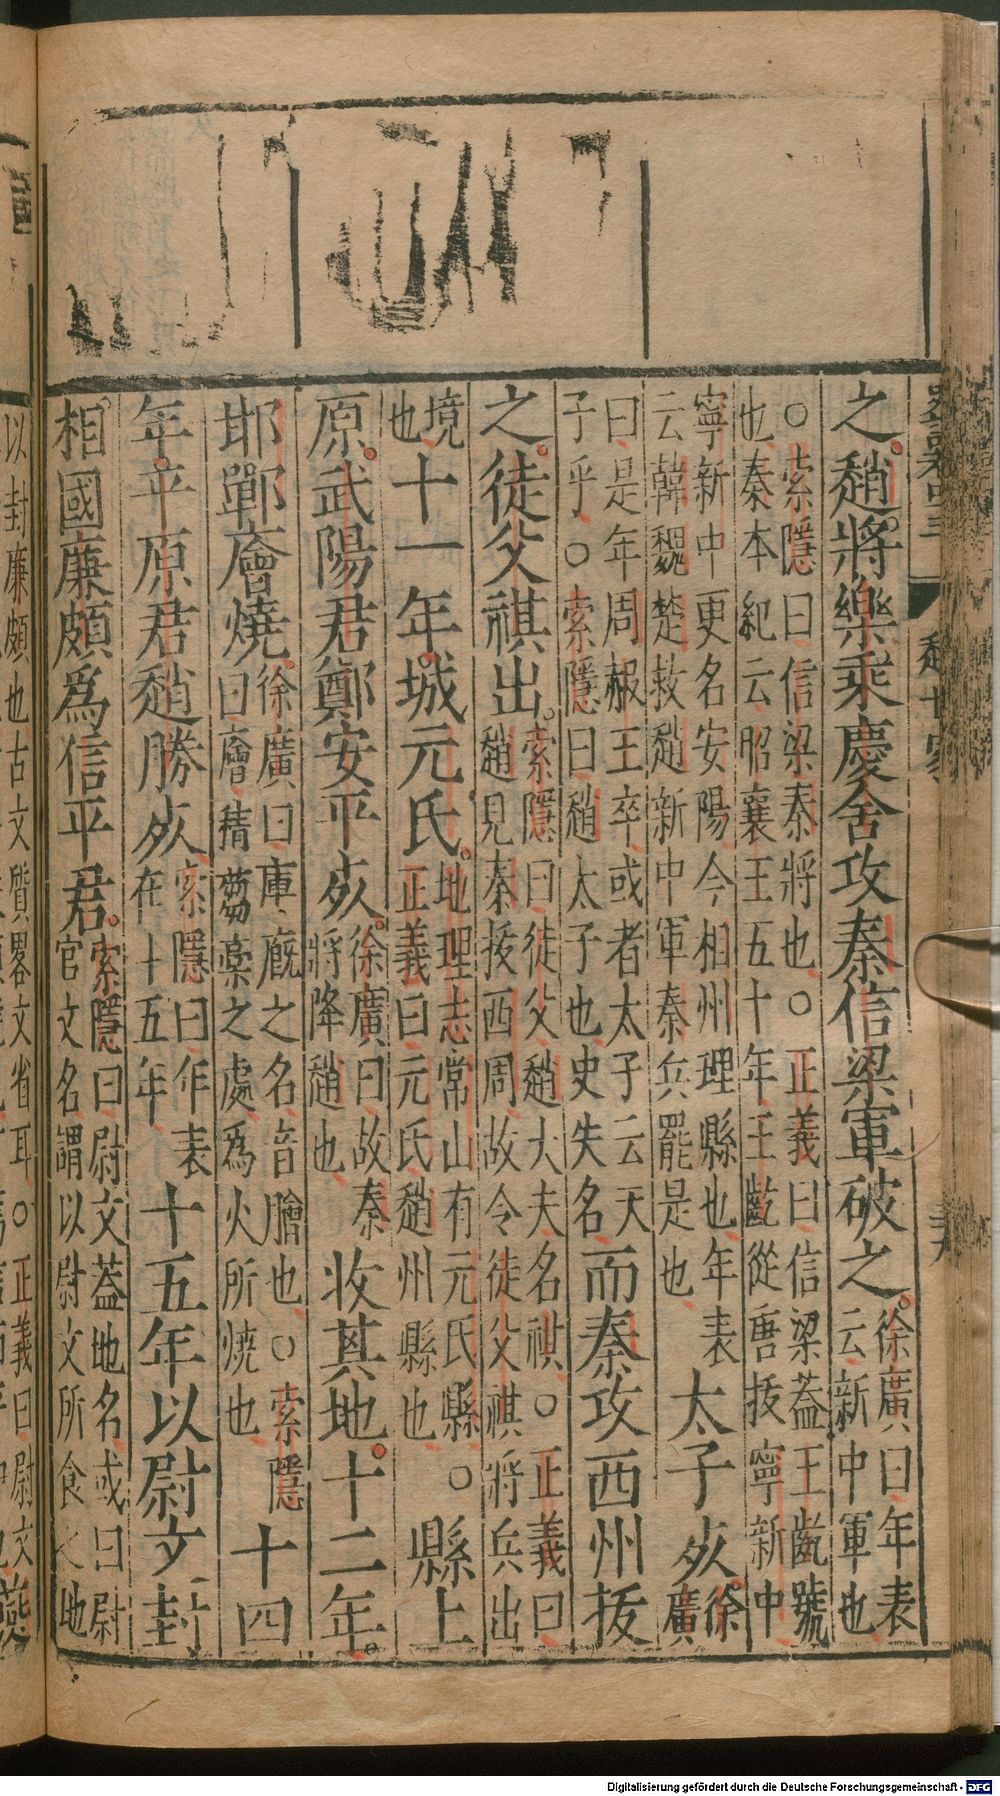 趙世家
之趙將樂乘慶舍攻秦信梁軍破之徐廣曰年表云新中軍也
○索隱曰信梁秦將也○正義曰信梁蓋王齕號
也秦本紀云昭襄王五十年王齕從唐拔寧新中
寧新中更名安陽今相州理縣也年表
云韓魏楚救趙新中軍秦兵罷是也太子死徐廣
曰是年周赧王卒或者太子云天
子乎○索隱曰趙太子也史失名而秦攻西州拔
之徒父祺出索隱曰徒父趙大夫名祺○正義曰
趙見秦拔西周故令徒父祺將兵出
境也十一年城元氏地理志常山有元氏縣○
正義曰元氏趙州縣也縣上
原武陽君鄭安平死徐廣曰故秦
將降趙也收其地十二年
邯鄲廥燒徐廣曰庫廐之名音膾也○索隱
曰廥積蒭藁之處為火所燒也十四
年平原君趙勝死索隱曰年表
在十五年十五年以尉文封
相國廉頗為信平君索隱曰尉文蓋地名或曰尉
官文名謂以尉文所食之地
以封廉頗也古文質畧文省耳○正義曰尉文
燕
Digitalisierung gefördert durch die Deutsche Forschungsgemeinschaft - DFG